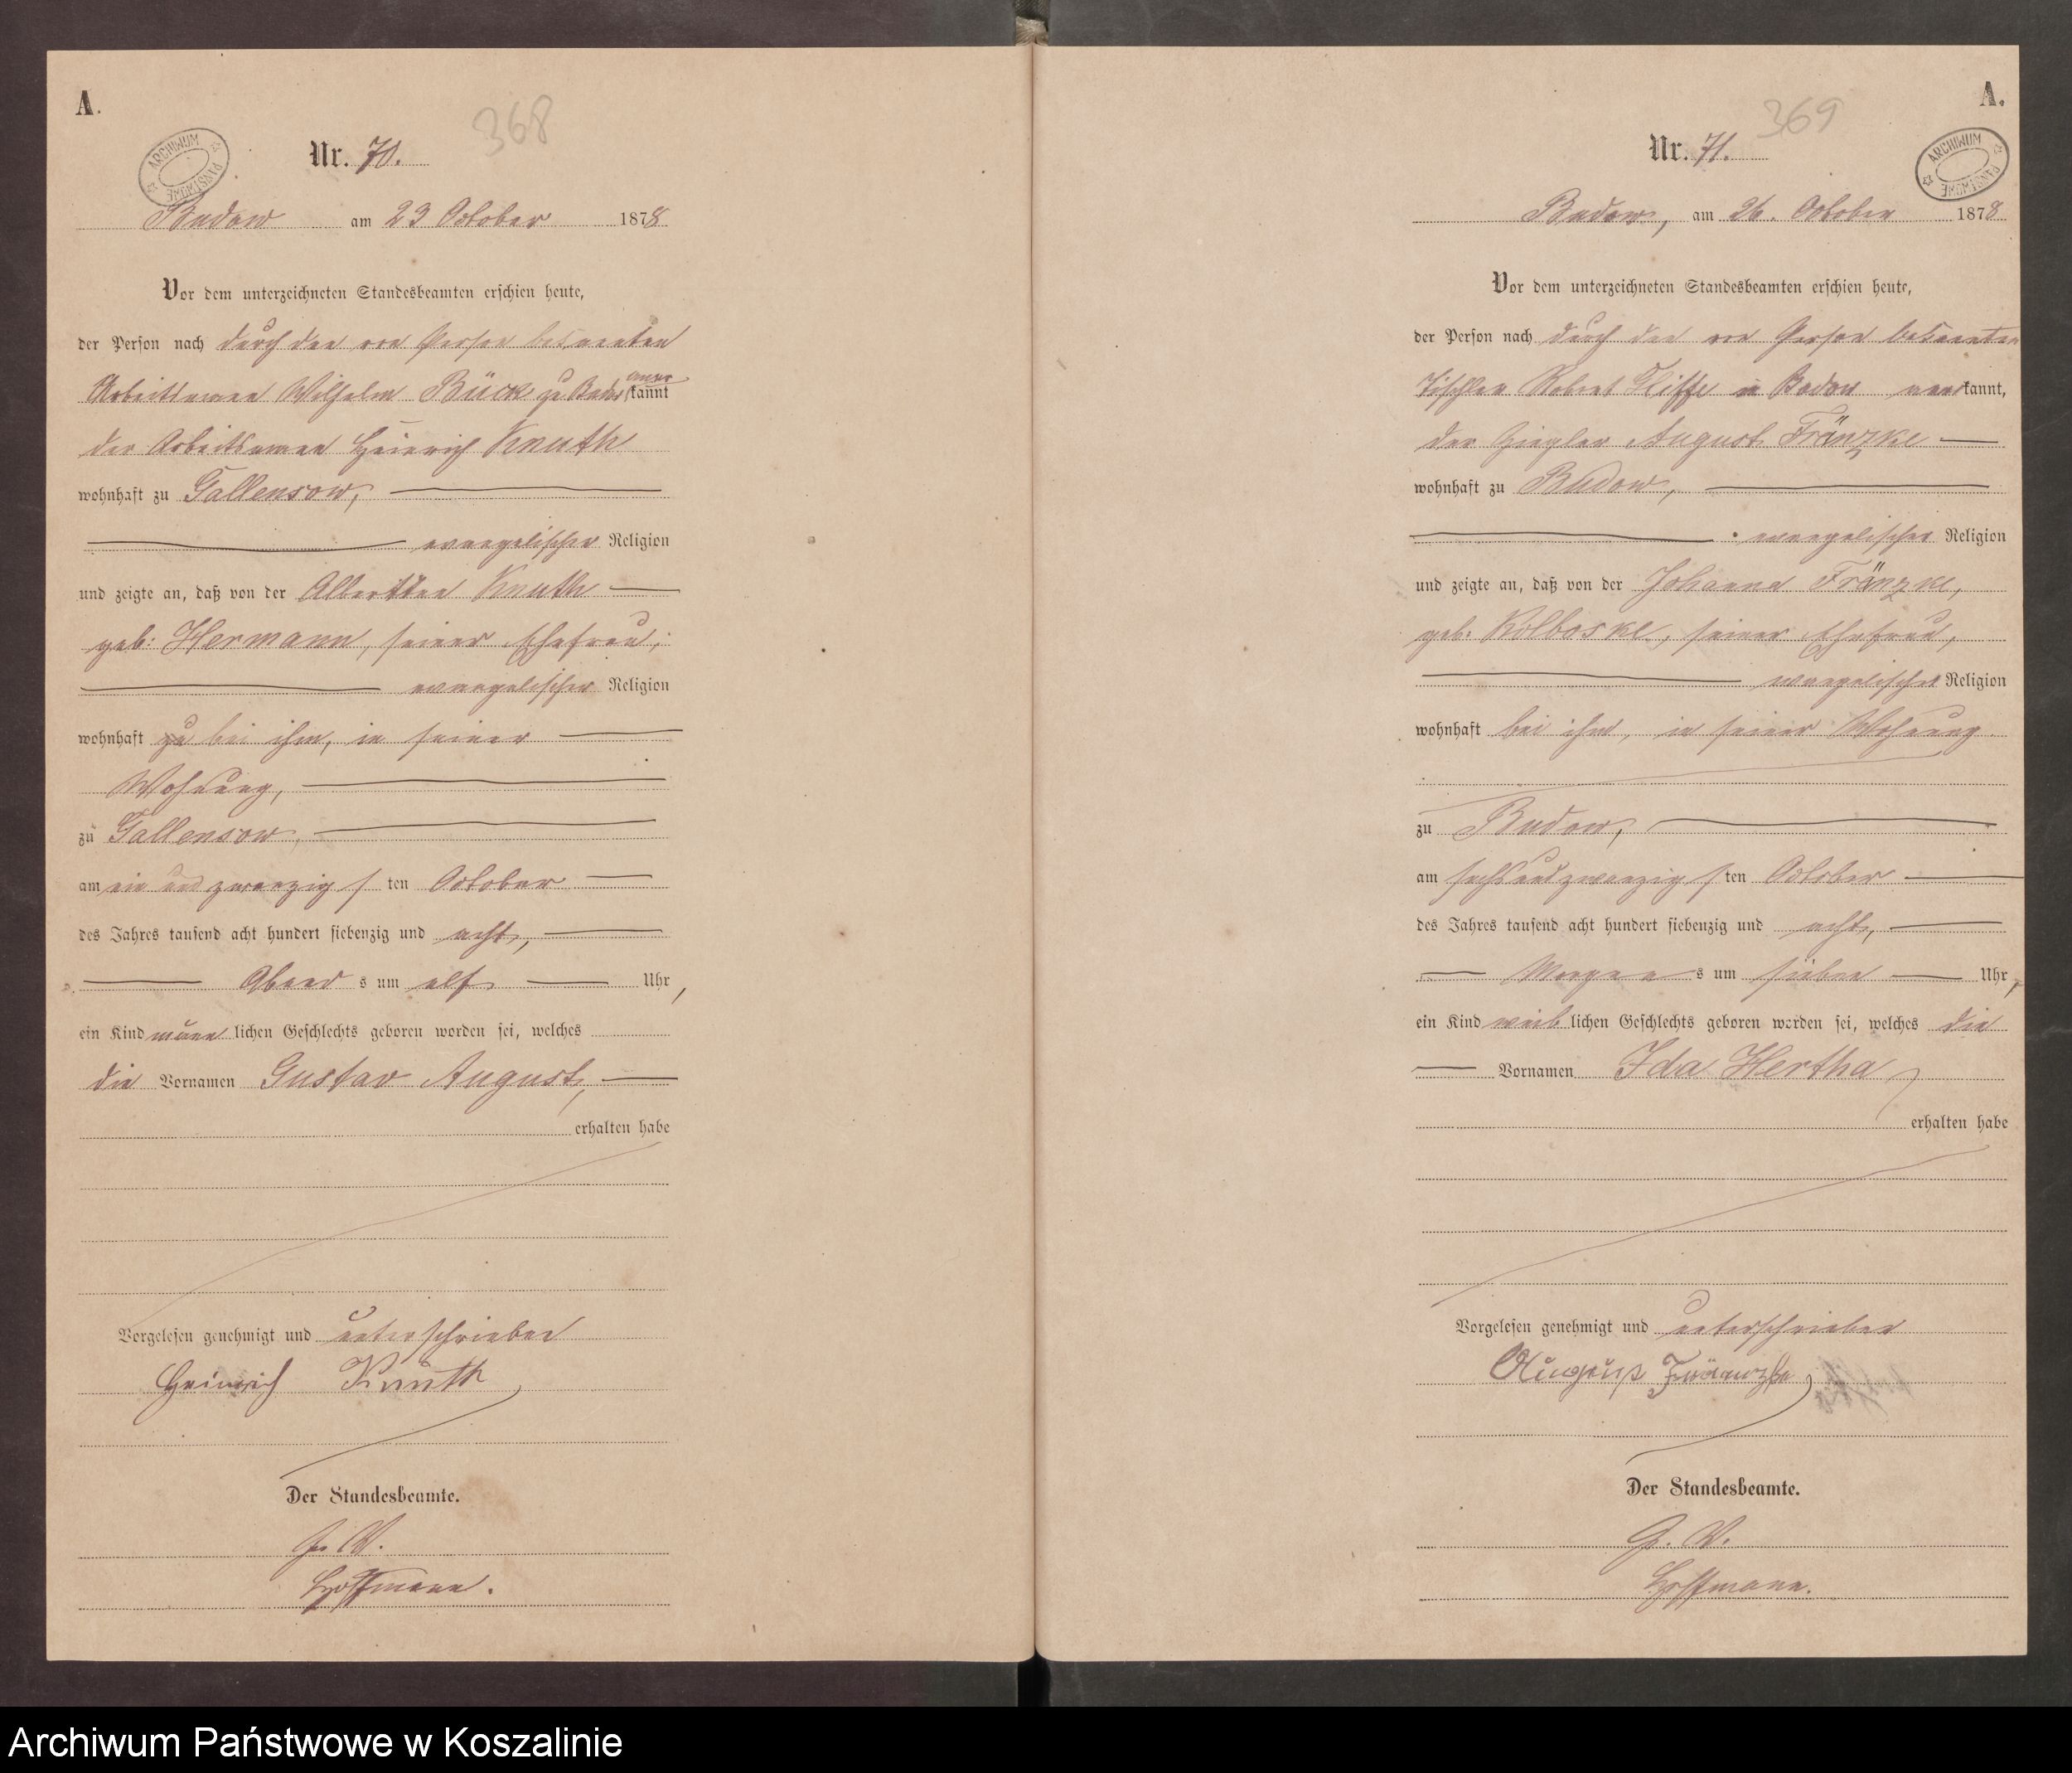 A.
368
Nr. 70.
ARCHIWUM PAŃSTWOWE
Budow am 23 October 1878
Vor dem unterzeichneten Standesbeamten erschien heute,
der Person nach durch den von Person bekannten
Arbeitsmann Wilhelm Bück zu Budow aner kannt
der Arbeitsmann Heinrich Knuth
wohnhaft zu Gallensow,
evangelischer Religion
und zeigte an, daß von der Albertine Knuth
geb: Hermann, seiner Ehefrau,
evangelischer Religion
wohnhaft zu bei ihm, in seiner
Wohnung,
zu Gallensow,
am ein und zwanzigs ten October
des Jahres tausend acht hundert siebenzig und acht,
Abend s um elf Uhr,
ein Kind männ lichen Geschlechts geboren worden sei, welches
die Vornamen Gustav August,
erhalten habe
Vorgelesen genehmigt und unterschrieben
Heinrich Knuth
Der Standesbeamte.
Hoffmann.
A.
369
Nr. 71.
ARCHIWUM PAŃSTWOWE
Budow, am 26. October 1878
Vor dem unterzeichneten Standesbeamten erschien heute,
der Person nach durch den von Person bekannten
Tischler Robert in Budow aner kannt,
der Ziegler August Fränzke
wohnhaft zu Budow,
evangelischer Religion
und zeigte an, daß von der Johanna Fränzke,
geb: Kolboske, seiner Ehefrau,
evangelischer Religion
wohnhaft bei ihm, in seiner Wohnung
zu Budow,
am sechsundzwanzigs ten October
des Jahres tausend acht hundert siebenzig und acht,
Morgen s um sieben Uhr,
ein Kind weib lichen Geschlechts geboren worden sei, welches die
Vornamen Ida Hertha
erhalten habe
Vorgelesen genehmigt und unterschrieben
August Fräanzke
Der Standesbeamte.
Hoffmann.
Archiwum Państwowe w Koszalinie